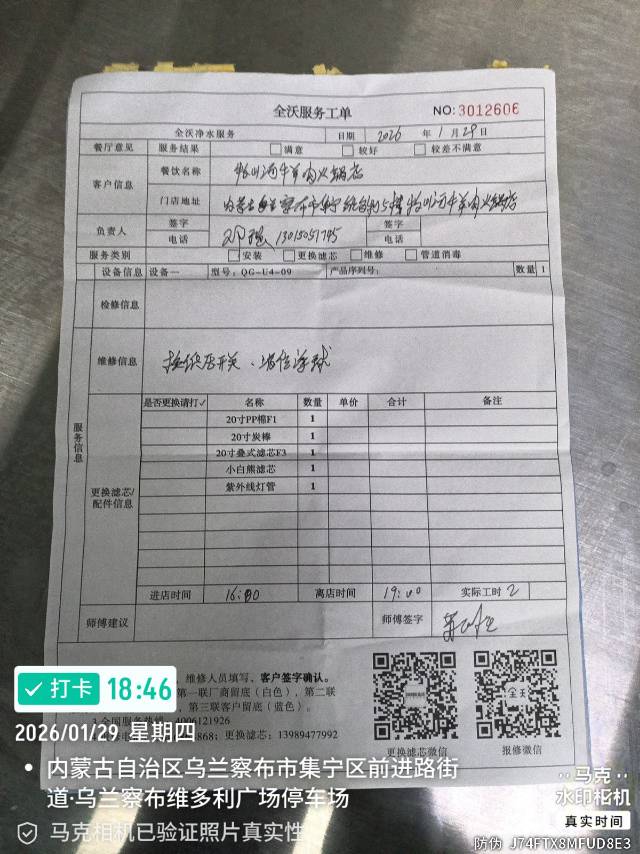 全沃服务工单
NO:3012606
全沃净水服务 日期 2026 年 1 月 29 日
餐厅意见 服务结果 满意 较好 较差不满意
客户信息 餐饮名称
门店地址
负责人 签字 签字
电话 13015051795 电话
服务类别 安装 更换滤芯 维修 管道消毒
设备信息 设备一 型号：QG-U4-09 产品序列号： 数量 1
检修信息
服务信息
维修信息
是否更换请打✓ 名称 数量 单价 合计 备注
20寸PP棉F1 1
20寸炭棒 1
20寸叠式滤芯F3 1
小白熊滤芯 1
紫外线灯管 1
更换滤芯/
配件信息
进店时间 16:00 离店时间 19:00 实际工时 2
师傅建议 师傅签字
维修人员填写、客户签字确认。
第一联厂商留底（白色），第二联
第三联客户留底（蓝色）。
3.全国服务热线 4006121926
868；更换：13989477992
全沃
更换滤芯微信 报修微信
打卡 18:46
2026/01/29 星期四
内蒙古自治区乌兰察布市集宁区前进路街
道·乌兰察布维多利广场停车场
马克相机已验证照片真实性
马克
水印相机
真实时间
防伪 J74FTX8MFUD8E3